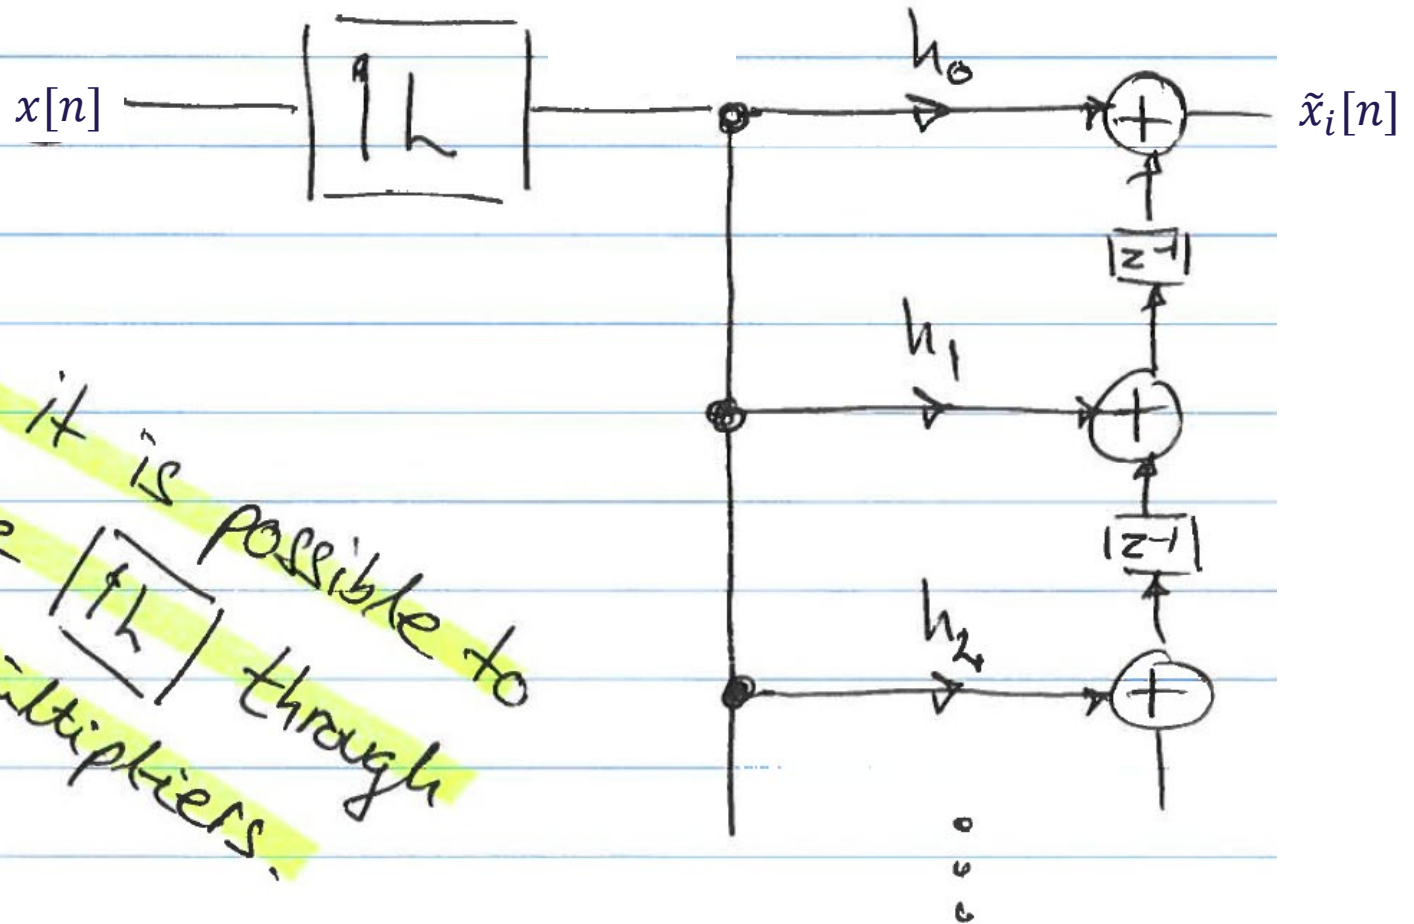 x[n]
↑L
h₀
x̃ᵢ[n]
z⁻¹
h₁
z⁻¹
h₂
it is possible to
↑L through
multipliers.